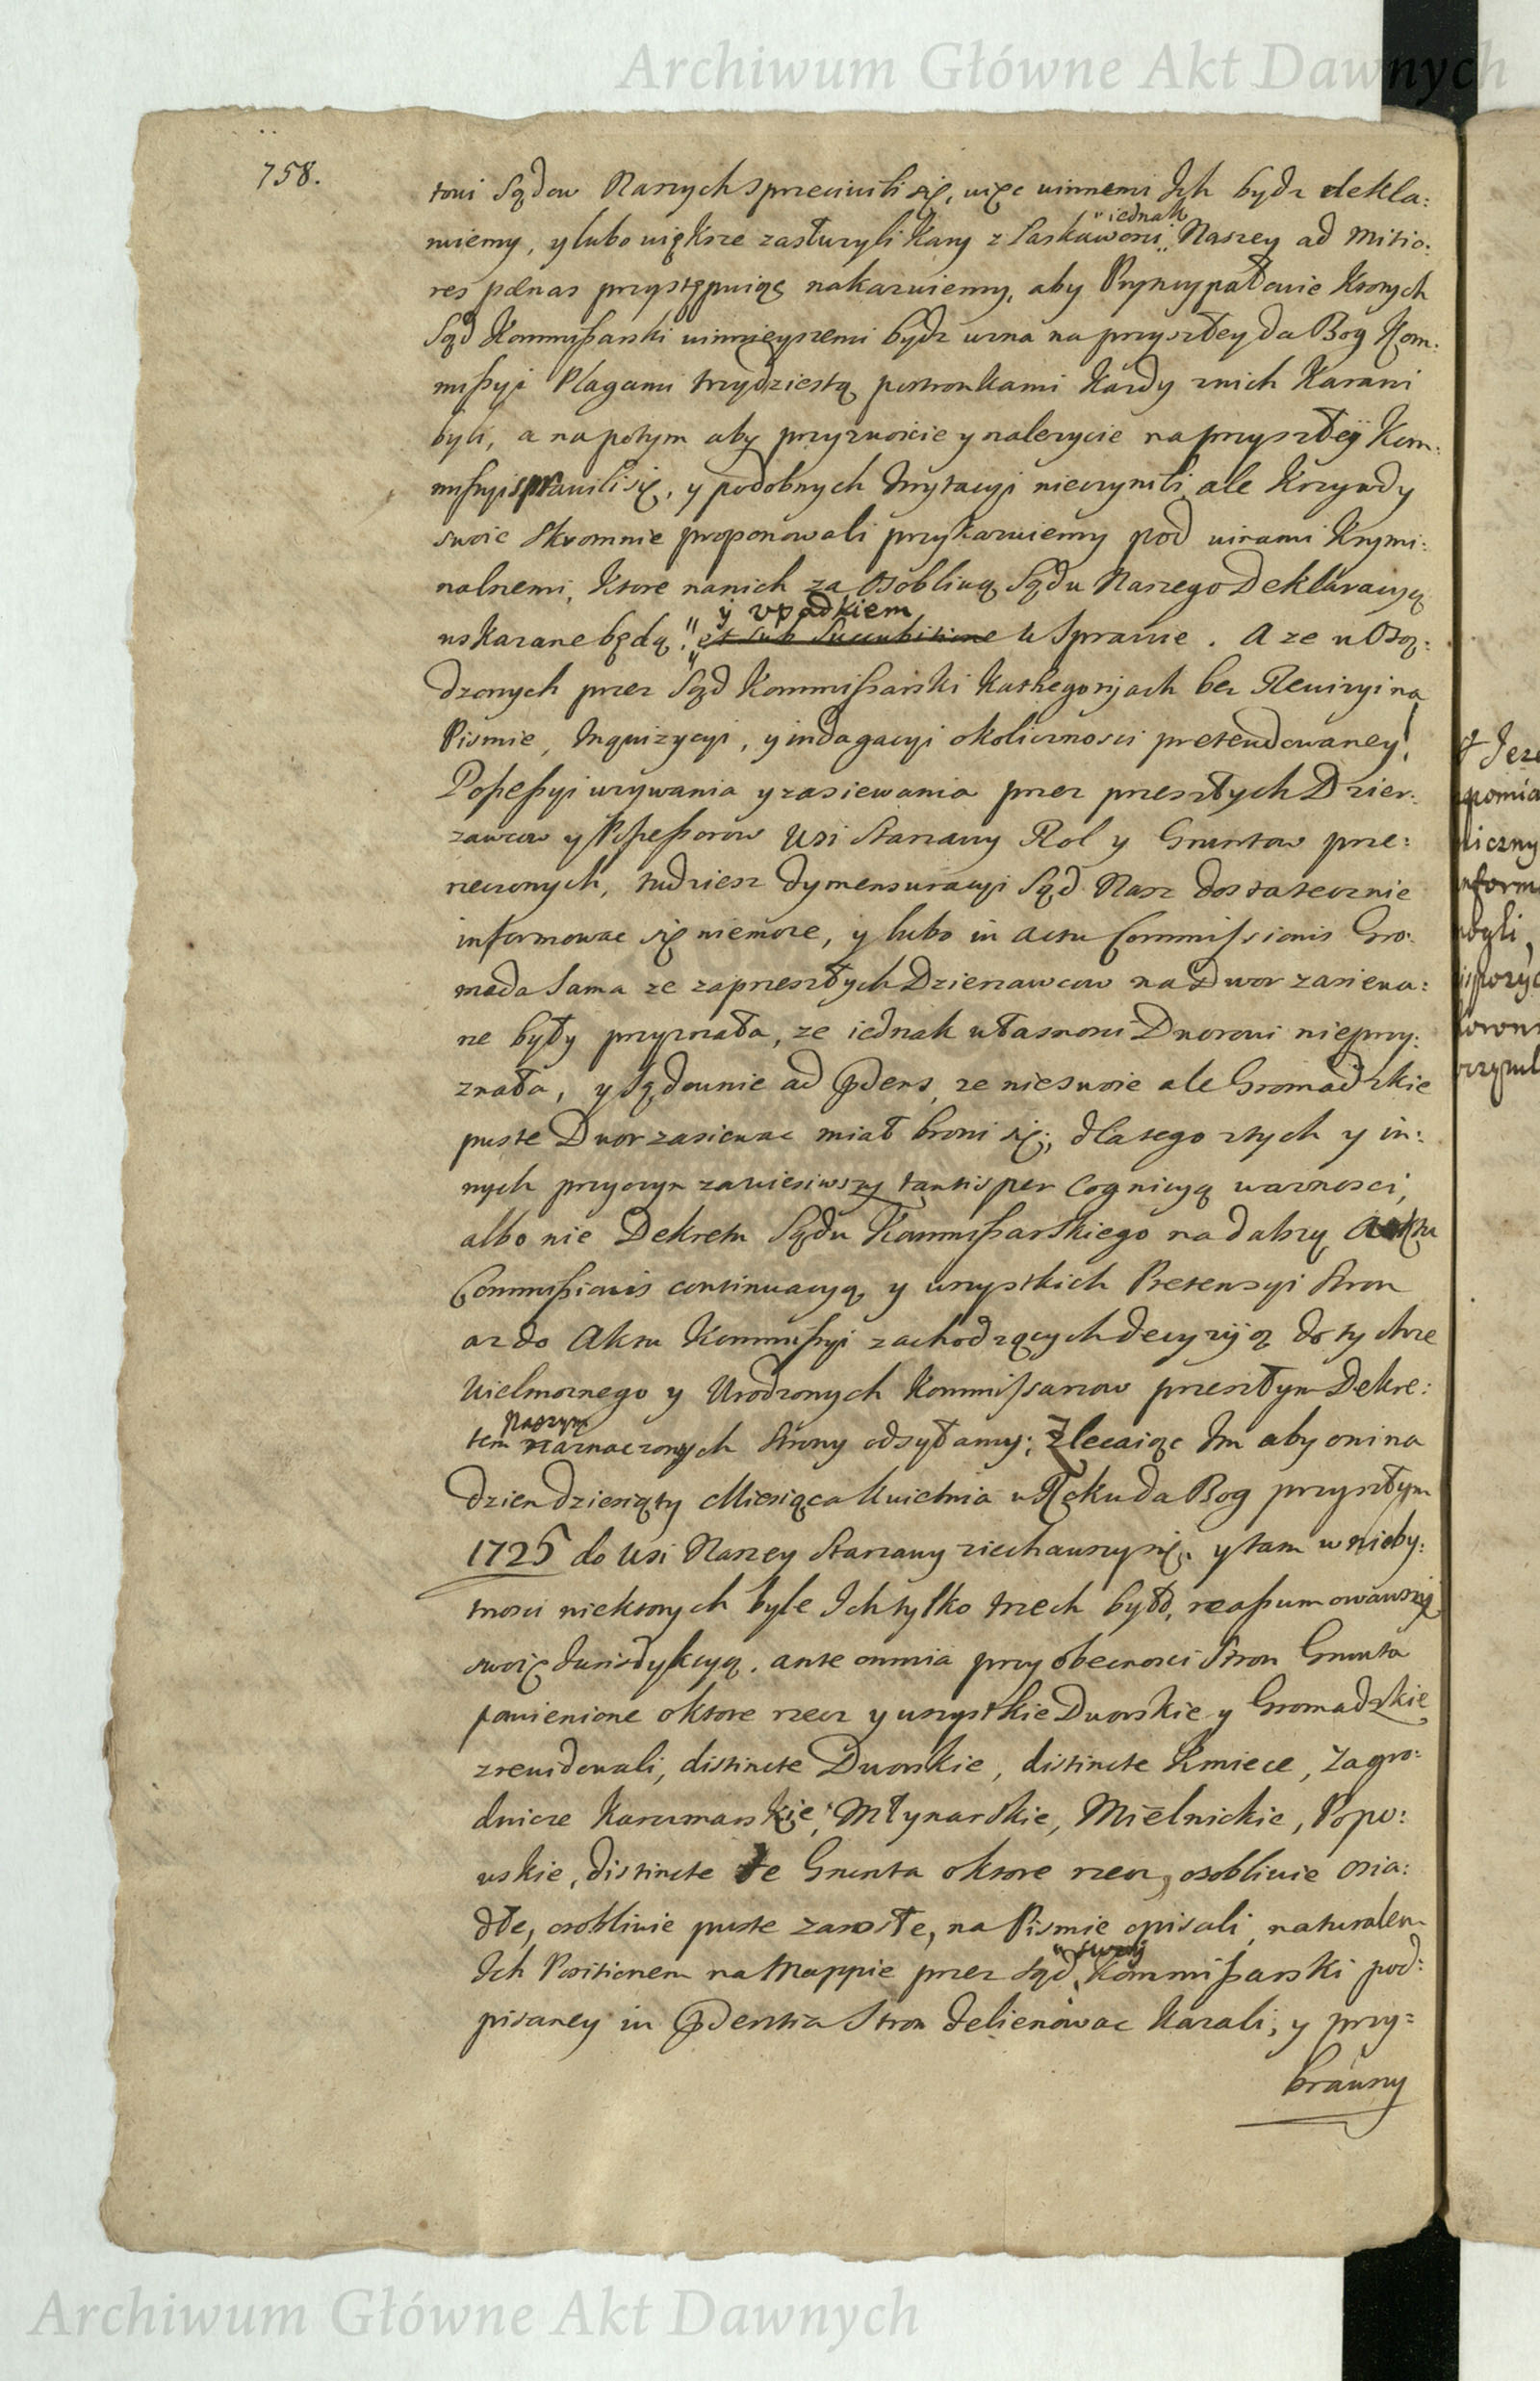 Archiwum Główne Akt Dawnych
758.
towi Sądow Naszych sprzeciwili się, więc winnemi Ich bydz dekla:
ruiemy, y lubo większe zasłużyli kary z Łaskawosci "iednak" Naszey ad mitio:
res pœnas przystępuiąc nakazuiemy, aby Pryncypałowie ktorych
Sąd Kommißarski winnieyszemi bydz uzna na przyszłey da Bog Kom:
mißyi Plagami trzydziestą postronkami kazdy z nich karani
byli, a napotym aby przyzwoicie y nalezycie na przyszłey Kom:
mißyi sprawili się, y podobnych Irrytacyi nieczynili, ale Krzywdy
swoie skromnie proponowali przykazuiemy pod winami Krymi:
nalnemi, ktore na nich za osobliwą Sądu Naszego Deklaracyą
wskazane będą "y upadkiem" et sub Succubitione w Sprawie. A ze w Osą:
dzonych przez Sąd Kommißarski Kathegoryach bez Rewizyi na
Pismie, Inquizycyi, y indagacyi okolicznosci pretendowaney
Poßeßyi uzywania y zasiewania przez przeszłych Dzier:
zawcow y Poßeßorow Wsi Starzawy Rol y Gruntow prze:
rzeczonych, tudziesz dymensuracyi Sąd Nasz dostatecznie
informowac się niemoze, y lubo in actu Commissionis Gro:
mada sama ze za przeszłych Dzierzawcow na Dwor zasiewa:
ne były przyznała, ze iednak własnosci Dworowi nieprzy:
znała, y Sądownie ad Pdens, ze nieswoie ale Gromadzkie
puste Dwor zasiewac miał broni się; dlatego z tych y in:
nych przyczyn zawiesiwszy tantisper Cognicyą waznosci,
albo nie Dekretu Sądu Kommißarskiego na dalszą Aktu
Commißionis continuacyą y wszystkich Pretensyi Stron
az do Aktu Kommißyi zachodzących decyzyią do tychze
Wielmoznego y Urodzonych Kommissarzow przeszłym Dekre:
tem naszym naznaczonych Strony odsyłamy; Zlecaiąc Im aby oni na
dzien dziesiąty Miesiąca Kwietnia w Roku da Bog przyszłym
1725 do Wsi Naszey Starzawy ziechawszy się, y tam w nieby:
tnosci niektorych byle Ich tylko trzech było, reaßumowawszy
swoię Jurisdykcyą, ante omnia przy obecnosci Stron Grunta
pomienione o ktore rzecz y wszystkie Dworskie y Gromadzkie
zrewidowali, distincte Dworskie, distincte Kmiece, Zagro:
dnicze Karczmarskie, Młynarskie, Mielnickie, Popo:
wskie, distincte te Grunta o ktore rzecz, osobliwie osia:
dłe, osobliwie puste zarosłe, na Pismie opisali, naturalem
Ich Positionem na Mappie przez Sąd "swoy" Kommißarski pod:
pisaney in Pdentia Stron delienowac kazali, y przy=
brawszy
Archiwum Główne Akt Dawnych